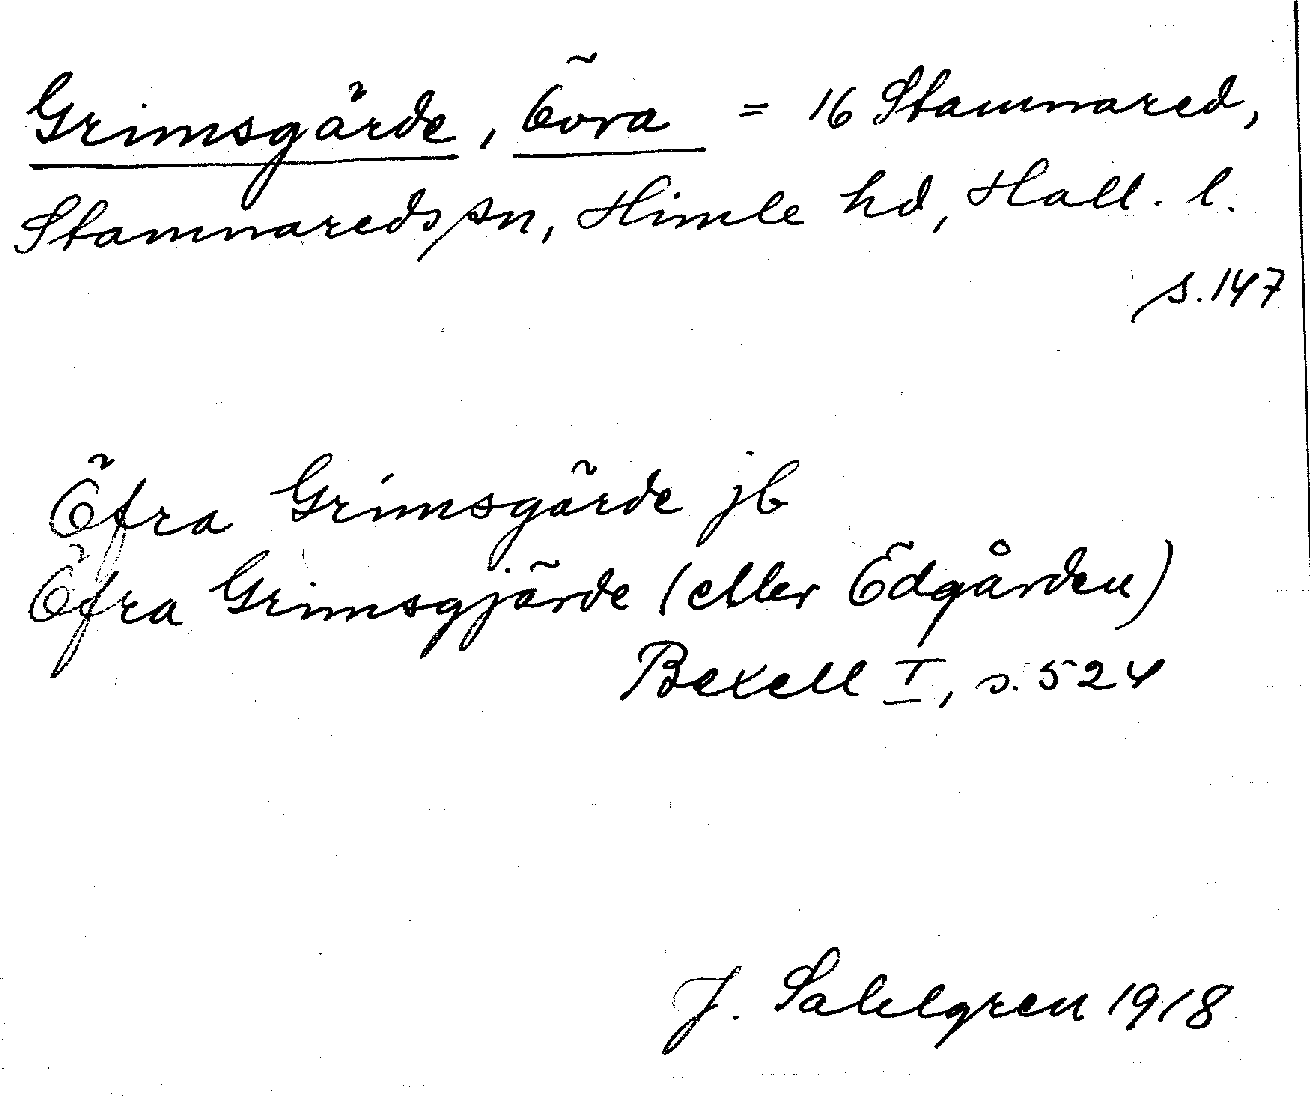 Grimsgärde, Övra = 16 Stamnared,
Stamnareds sn, Himle hd, Hall. l.
s. 147
Öfra Grimsgärde jb
Öfra Grimsgjärde (eller Ödgården)
Bexell I, s. 524
J. Sahlgren 1918